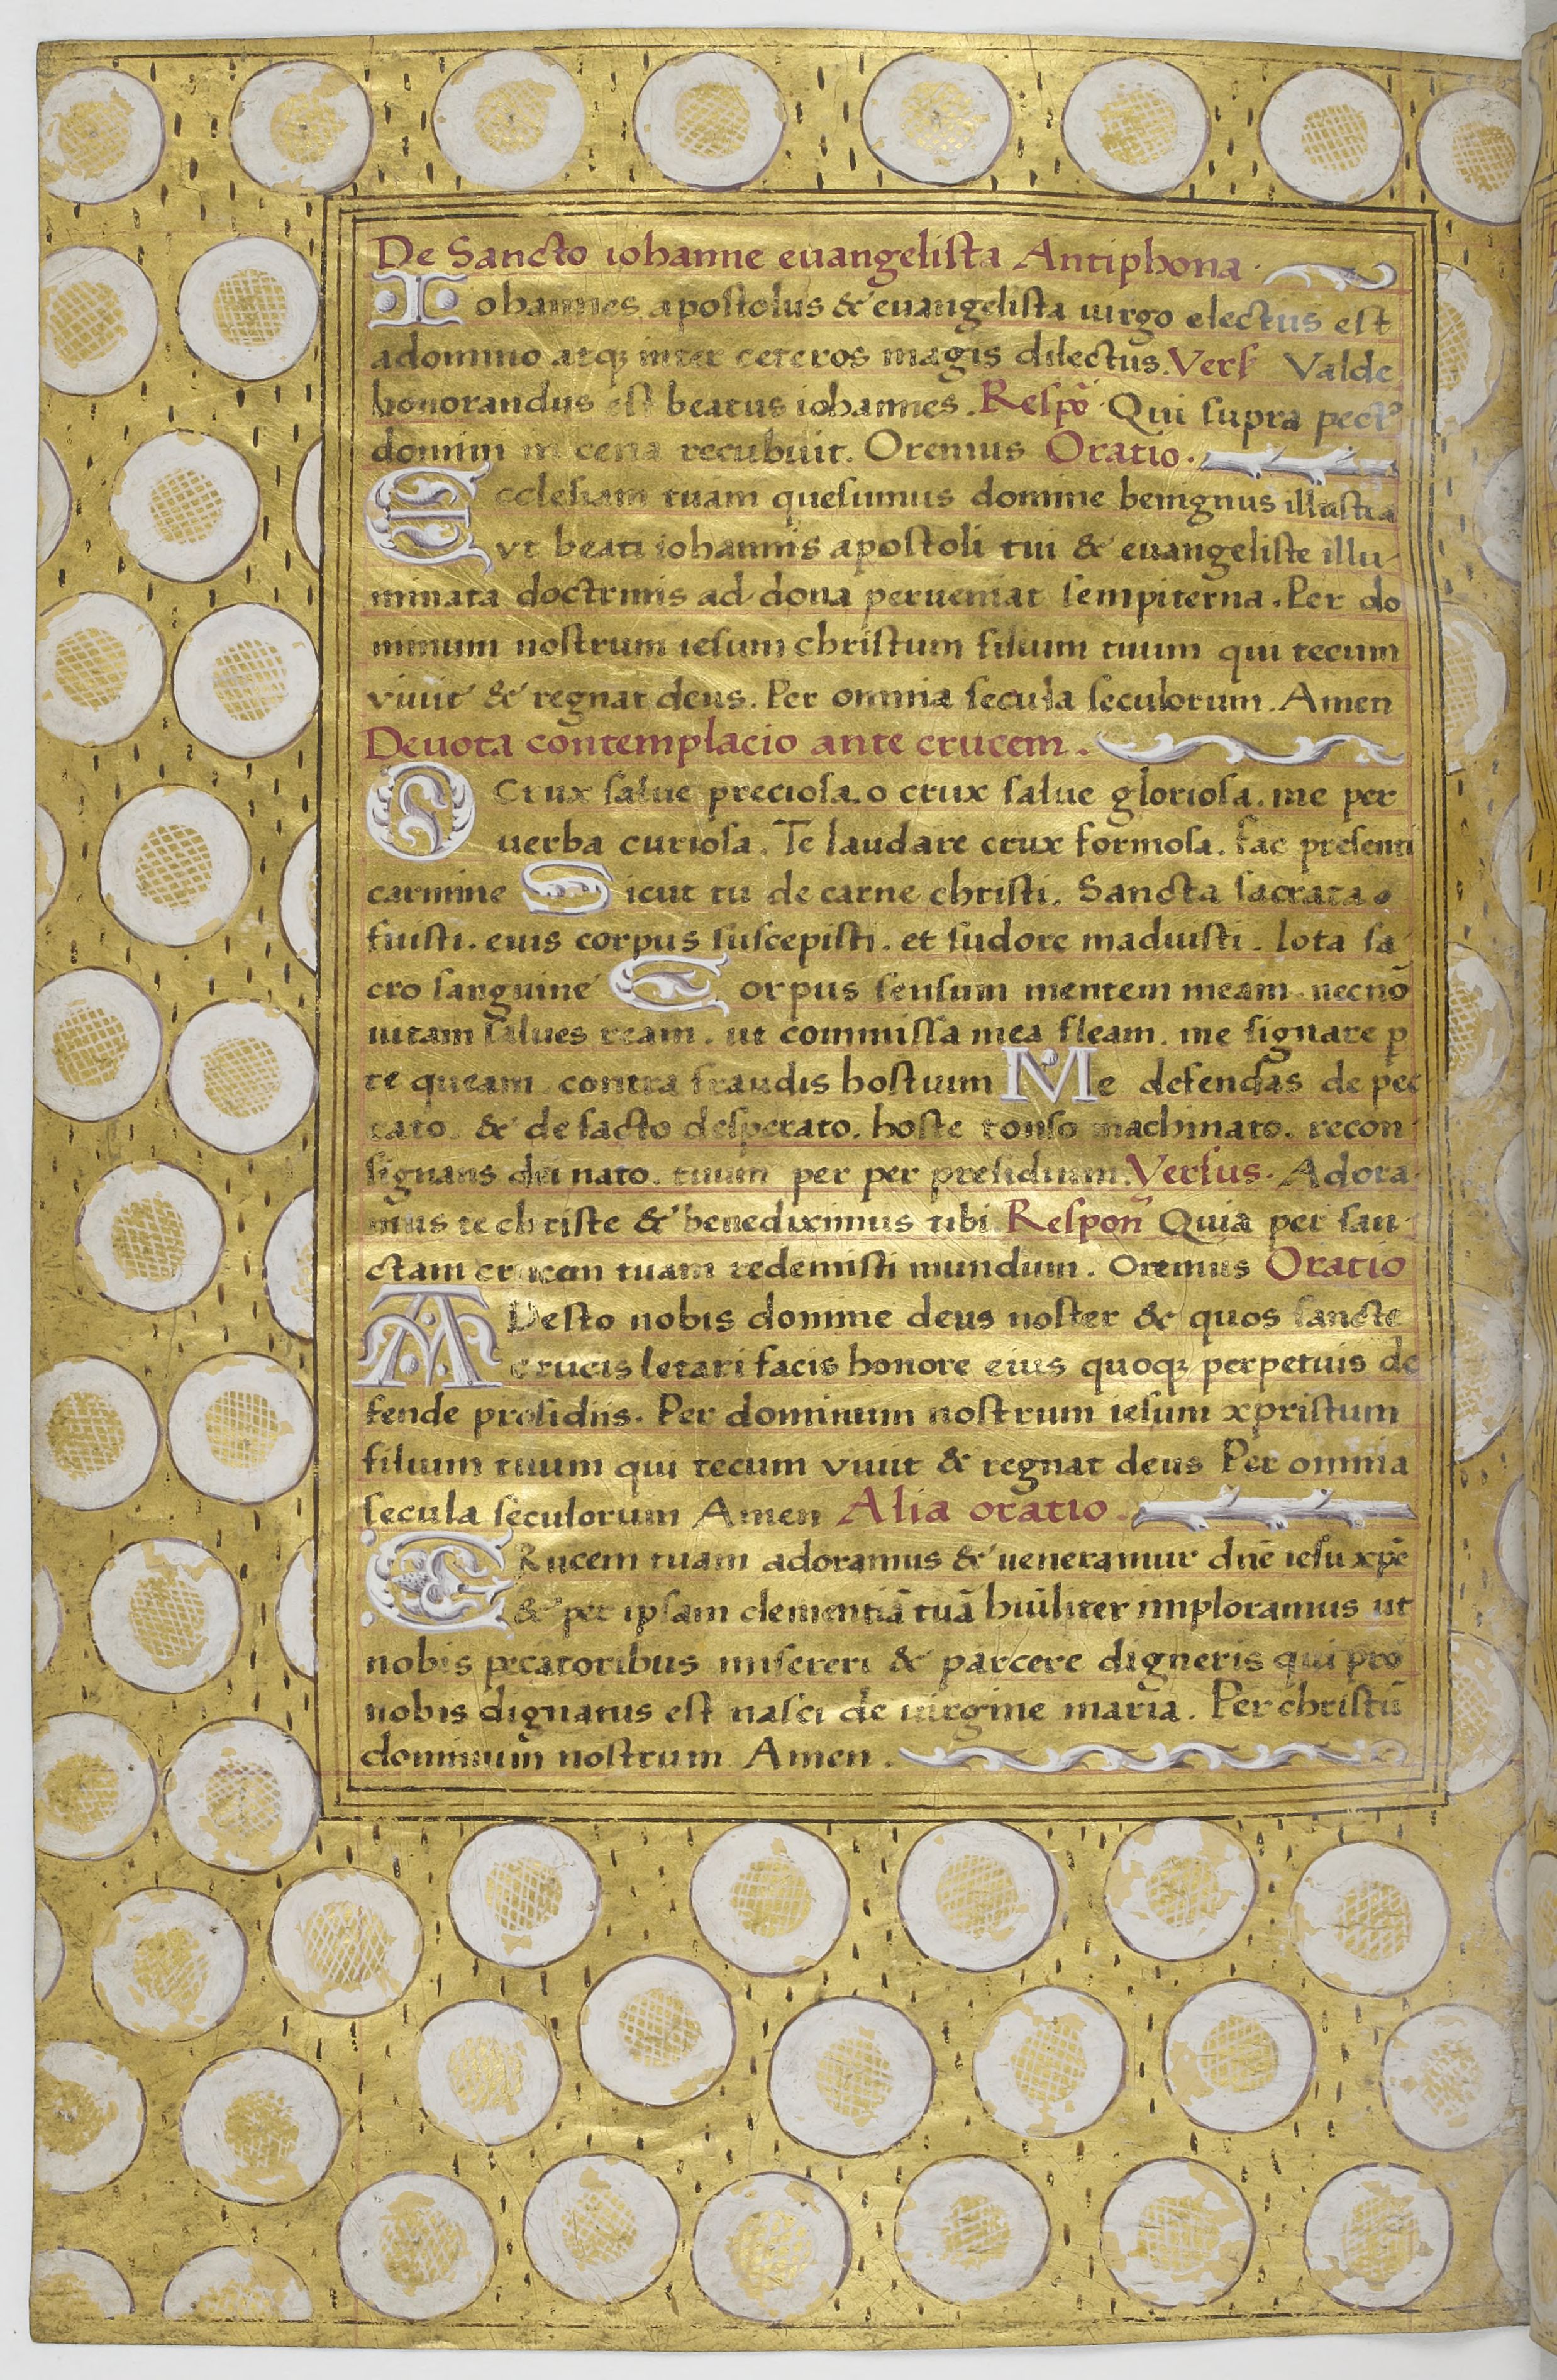 De Sancto iohanne euangelista Antiphona
Iohannes apostolus & euangelista uirgo electus est
adomino atqꝫ inter ceteros magis dilectus. Vers Valde
honorandus est beatus iohannes. Respõ Qui supra pectꝰ
domini in cena recubuit. Oremus Oratio.
Ecclesiam tuam quesumus domine benignus illustra
vt beati iohannis apostoli tui & euangeliste illu-
minata doctrinis ad dona perueniat sempiterna. Per do
minum nostrum iesum christum filium tuum qui tecum
viuit & regnat deus. Per omnia secula seculorum. Amen
Deuota contemplacio ante crucem.
O Crux salue preciosa. o crux salue gloriosa. me per
uerba curiosa. Te laudare crux formosa. fac presenti
carmine Sicut tu de carne christi. Sancta sacrata
fuisti. eius corpus suscepisti. et sudore maduisti. lota sa
cro sanguine Corpus sensum mentem meam necnõ
uitam salues ream. ut commissa mea fleam. me signare p
te queam contra fraudis hostium Me defendas de pec
cato & de facto desperato. hoste tonso machinato. recon
signans dei nato. tuum per per presidium. Versus. Adora
mus te christe & benediximus tibi Respon̄ Quia per san-
ctam crucem tuam redemisti mundum. Oremus Oratio
ADesto nobis domine deus noster & quos sancte
crucis letari facis honore eius quoqꝫ perpetuis de
fende presidiis. Per dominum nostrum iesum xpristum
filium tuum qui tecum viuit & regnat deus Per omnia
secula seculorum Amen Alia oratio.
CRucem tuam adoramus & ueneramur dñe iesu xp̃e
& per ipsam clementiã tuã hũiliter imploramus ut
nobis pecatoribus misereri & parcere digneris qui pro
nobis dignatus est nasci de uirgine maria. Per christũ
dominum nostrum Amen.